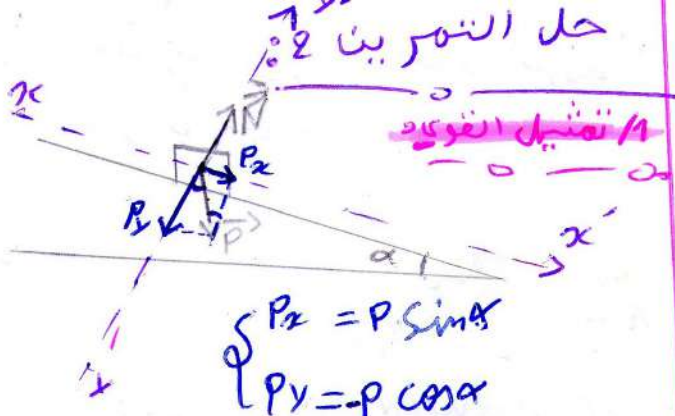 حل التمرين 2:
1/ تمثيل القوى:
y
x
N
Px
Py
P
α
x'
y'
Px = P sinα
Py = -P cosα